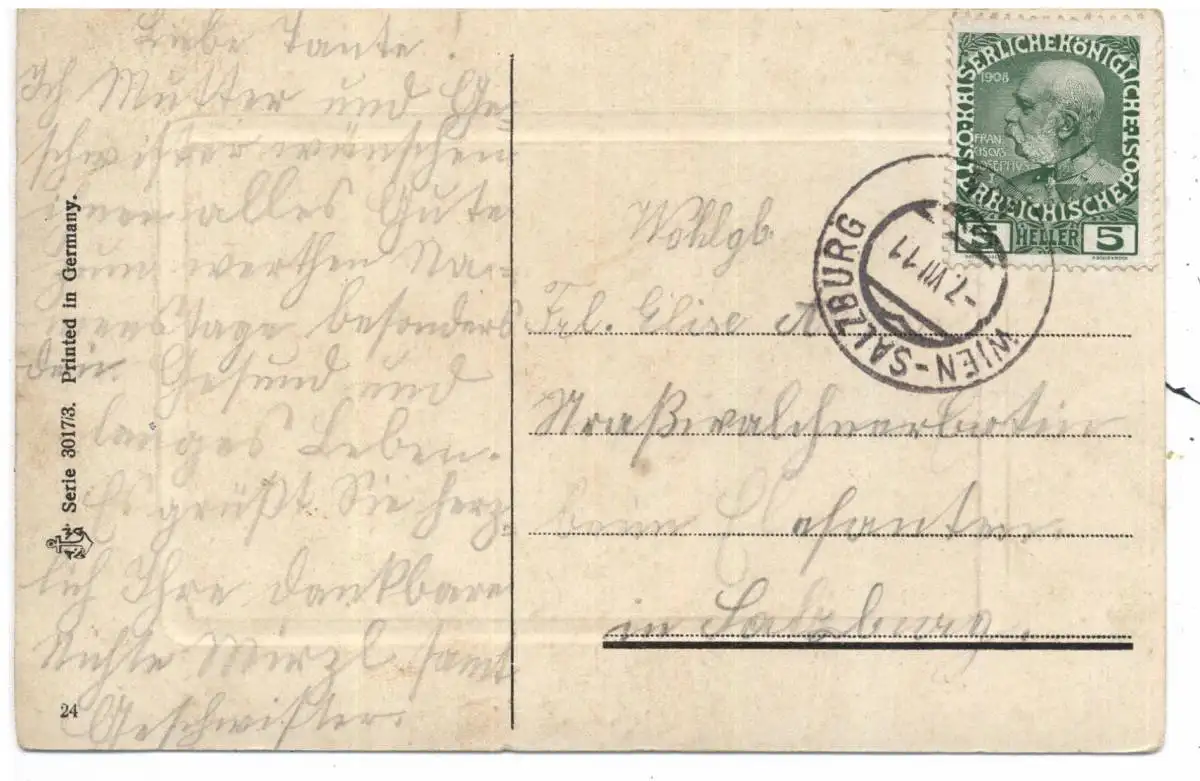 Liebe Tante!
Ich Mutter und Ge-
schwister wünschen
ihnen alles Gute
zum werthen Na-
menstage besonders
dein Gesund und
langes Leben.
Es grüßt Sie herz-
lich Ihre dankbare
Nichte Mirzl samt
Geschwister.
Serie 3017/3. Printed in Germany.
24
Wohlgb.
Frl. Elise
Straßwalchnerbotin
beim Elefanten
in Salzburg.
KAISERLICHE KÖNIGLICHE ÖSTERREICHISCHE POST
1908
FRAN
CISCVS
JOSEPHVS
5 HELLER 5
WIEN-SALZBURG
-7.VII.11